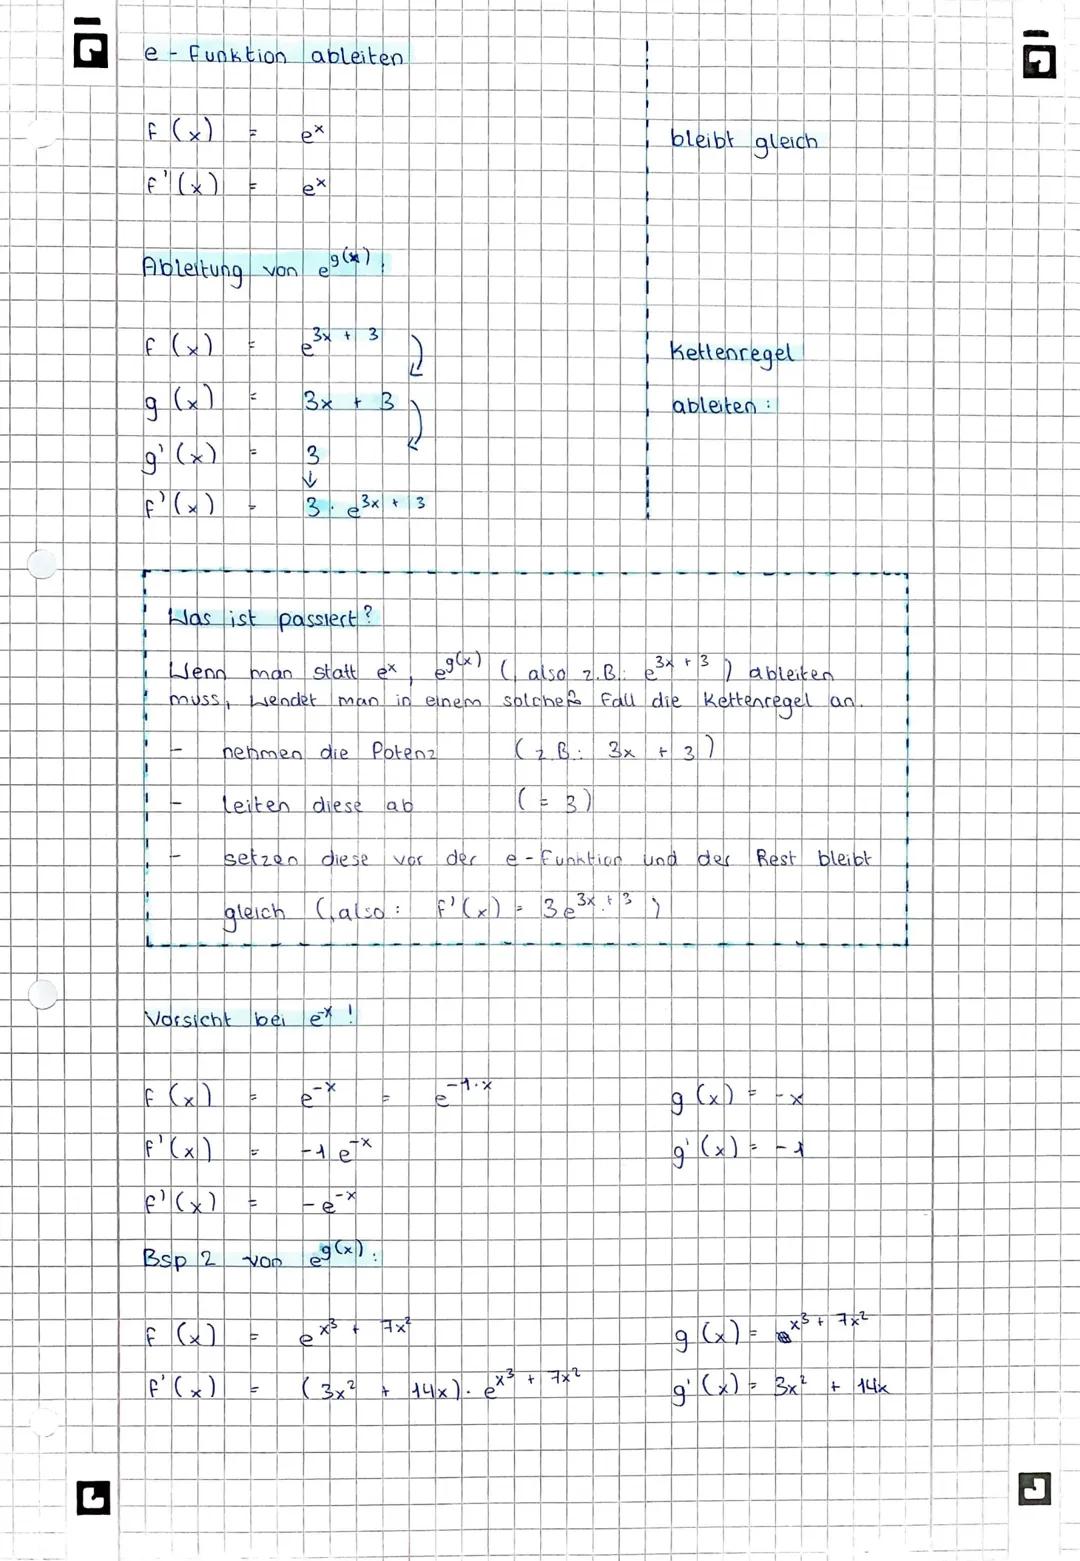 e - Funktion ableiten
f (x) = eˣ
bleibt gleich
f'(x) = eˣ
Ableitung von e^g(x):
f (x) = e^3x + 3
Kettenregel
g (x) = 3x + 3
ableiten:
g'(x) = 3
↓
f'(x) = 3 · e^3x + 3
Was ist passiert?
Wenn man statt eˣ, e^g(x) (also z.B.: e^3x + 3) ableiten
muss, wendet man in einem solchen Fall die Kettenregel an.
- nehmen die Potenz (z.B.: 3x + 3)
- leiten diese ab (= 3)
- setzen diese vor der e-Funktion und der Rest bleibt
gleich (also: f'(x) = 3e^3x + 3)
Vorsicht bei e^-x!
f (x) = e^-x = e^-1·x g (x) = -x
f'(x) = -1 e^-x g'(x) = -1
f'(x) = -e^-x
Bsp 2 von e^g(x):
f (x) = e^x³ + 7x² g (x) = x³ + 7x²
f'(x) = (3x² + 14x) · e^x³ + 7x² g'(x) = 3x² + 14x